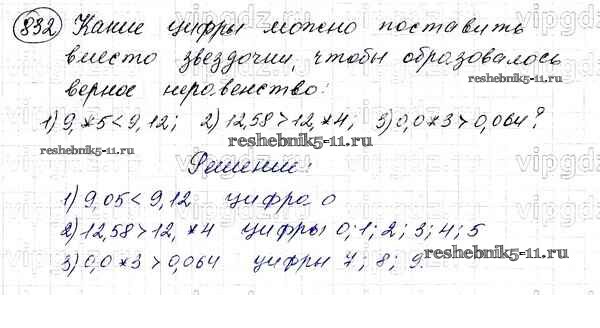 832 Какие цифры можно поставить
вместо звездочки, чтобы образовалось
верное неравенство:
1) 9,*5<9,12; 2) 12,58>12,*4; 3) 0,0*3>0,064?
Решение:
1) 9,05<9,12 цифра 0
2) 12,58>12,*4 цифры 0; 1; 2; 3; 4; 5
3) 0,0*3>0,064 цифры 7; 8; 9.
reshebnik5-11.ru
reshebnik5-11.ru
reshebnik5-11.ru
reshebnik5-11.ru
vipgdz
vipgdz
vipgdz
vipgdz